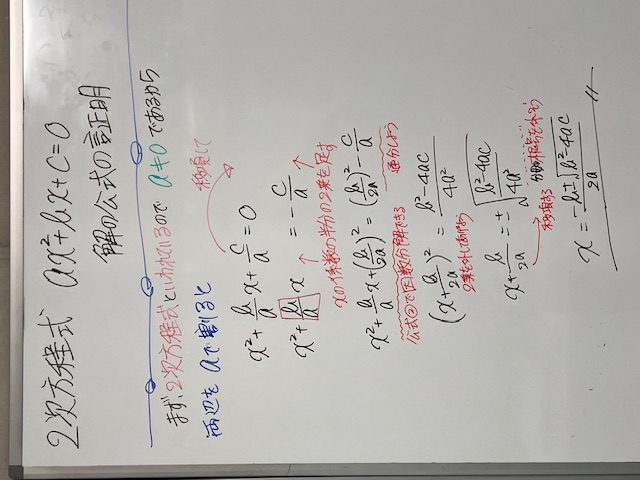 2次方程式 ax²+bx+c=0
解の公式の証明
まず、2次方程式といわれているので a≠0 であるから
両辺を aで割ると
x²+b/a x+c/a=0
移項して
x²+b/a x =-c/a
xの係数の半分の2乗を足す
x²+b/a x+(b/2a)²=(b/2a)²-c/a
公式②で因数分解できる 通分しよう
(x+b/2a)²=b²-4ac/4a²
2乗を外してあげよう
x+b/2a=±√b²-4ac/4a²
移項する
x=-b±√b²-4ac/2a